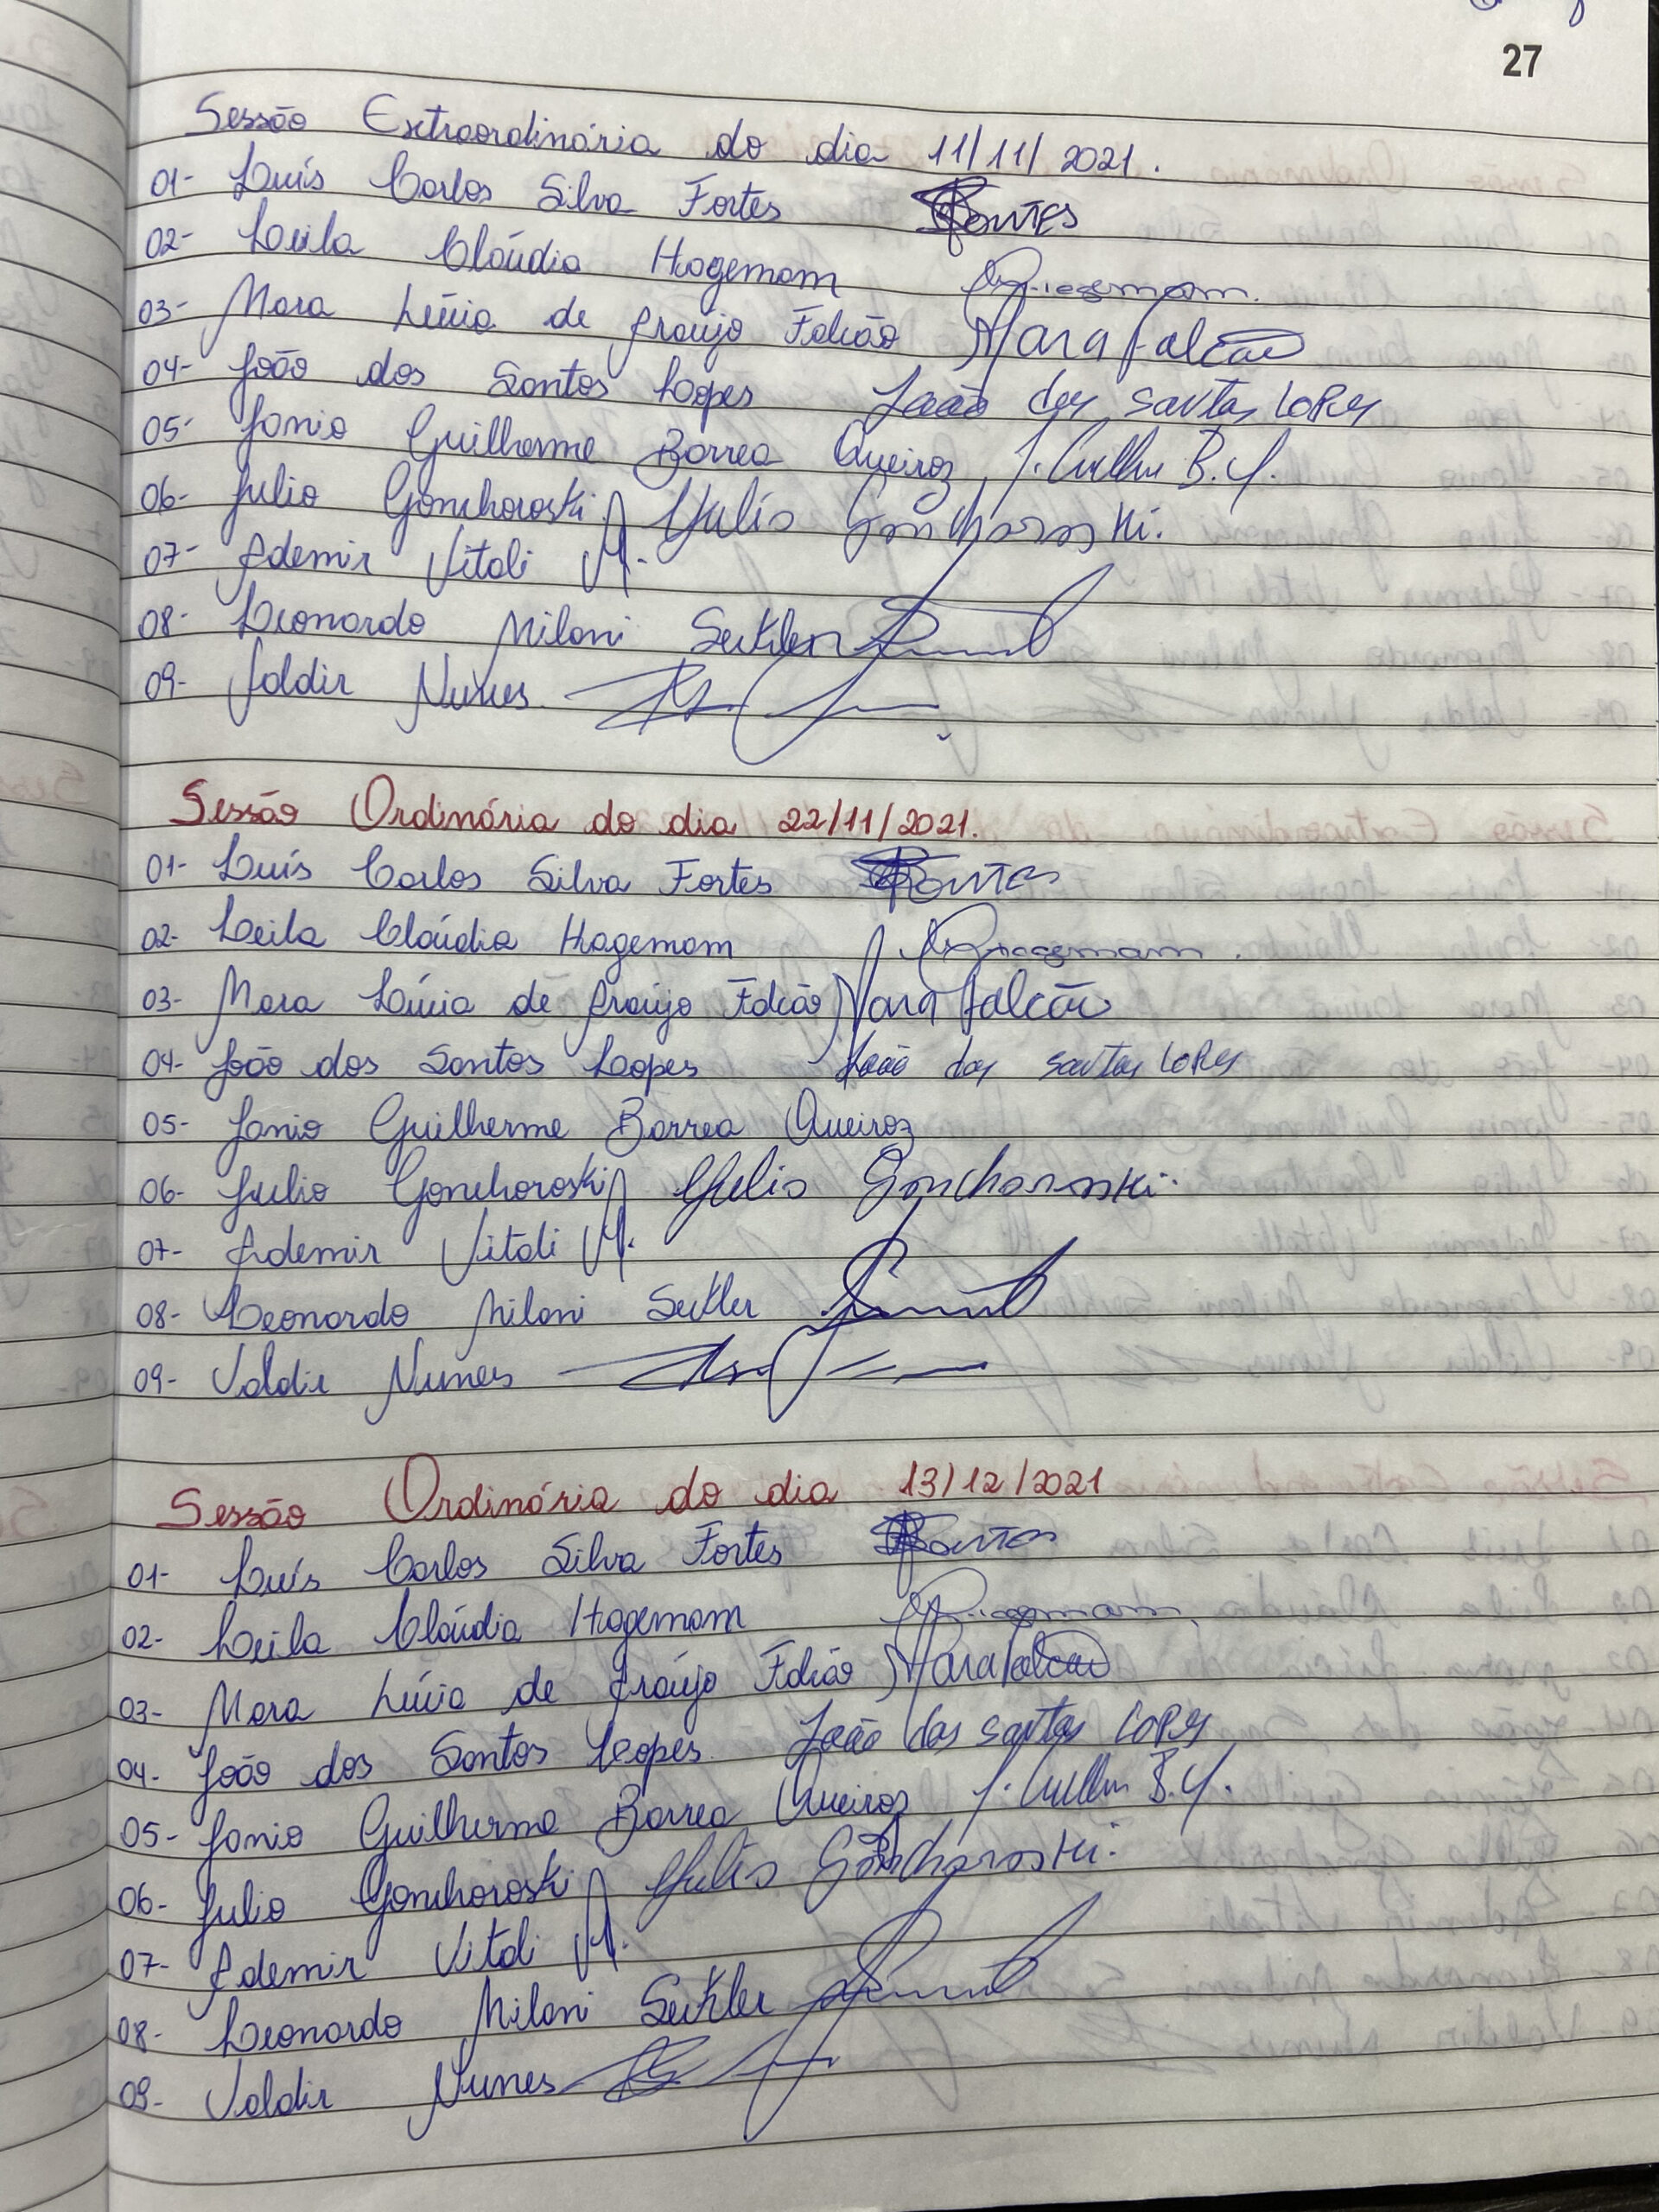 27
Sessão Extraordinária do dia 11/11/2021.
01- Luís Carlos Silva Fortes Fortes
02- Leila Cláudia Hagemam Hagemam.
03- Mara Lúcia de Araújo Falcão Mara Falcão
04- João dos Santos Lopes João dos Santos Lopes
05- Janio Guilherme Borrea Queiroz J. Guilhe B. Q.
06- Julio Gonchoroski Julio Gonchoroski.
07- Ademir Vitali
08- Leonardo Miloni Seckler
09- Valdir Nunes
Sessão Ordinária do dia 22/11/2021.
01- Luís Carlos Silva Fortes Fortes
02- Leila Cláudia Hagemam Hagemam.
03- Mara Lúcia de Araújo Falcão Mara Falcão
04- João dos Santos Lopes João dos Santos Lopes
05- Janio Guilherme Borrea Queiroz
06- Julio Gonchoroski Julio Gonchoroski.
07- Ademir Vitali
08- Leonardo Miloni Seckler
09- Valdir Nunes
Sessão Ordinária do dia 13/12/2021
01- Luís Carlos Silva Fortes Fortes
02- Leila Cláudia Hagemam Hagemam.
03- Mara Lúcia de Araújo Falcão Mara Falcão
04- João dos Santos Lopes. João dos Santos Lopes
05- Janio Guilherme Borrea Queiroz J. Guilhe B. Q.
06- Julio Gonchoroski Julio Gonchoroski.
07- Ademir Vitali
08- Leonardo Miloni Seckler
09- Valdir Nunes